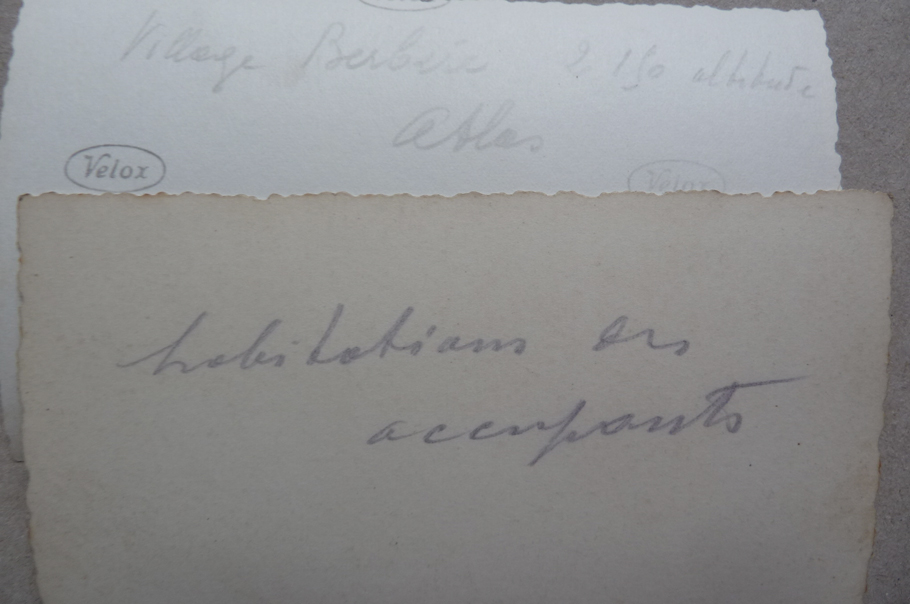 Village Berbère 2 150 altitude
Atlas
Velox
Velox
habitations des
occupants